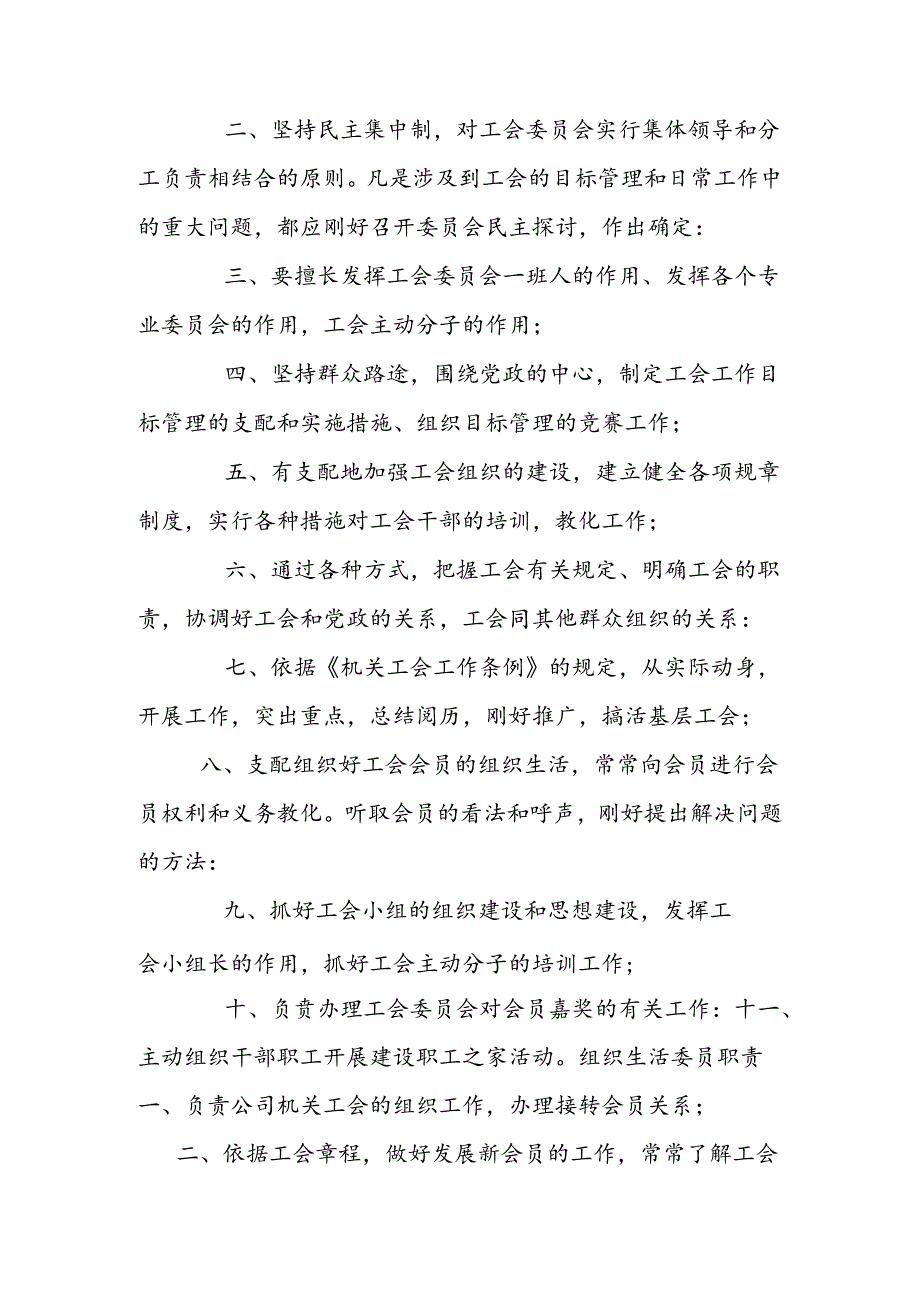 二、坚持民主集中制，对工会委员会实行集体领导和分
工负责相结合的原则。凡是涉及到工会的目标管理和日常工作中
的重大问题，都应刚好召开委员会民主探讨，作出确定：
三、要擅长发挥工会委员会一班人的作用、发挥各个专
业委员会的作用，工会主动分子的作用；
四、坚持群众路途，围绕党政的中心，制定工会工作目
标管理的支配和实施措施、组织目标管理的竞赛工作；
五、有支配地加强工会组织的建设，建立健全各项规章
制度，实行各种措施对工会干部的培训，教化工作；
六、通过各种方式，把握工会有关规定、明确工会的职
责，协调好工会和党政的关系，工会同其他群众组织的关系：
七、依据《机关工会工作条例》的规定，从实际动身，
开展工作，突出重点，总结阅历，刚好推广，搞活基层工会；
八、支配组织好工会会员的组织生活，常常向会员进行会
员权利和义务教化。听取会员的看法和呼声，刚好提出解决问题
的方法：
九、抓好工会小组的组织建设和思想建设，发挥工
会小组长的作用，抓好工会主动分子的培训工作；
十、负贲办理工会委员会对会员嘉奖的有关工作：十一、
主动组织干部职工开展建设职工之家活动。组织生活委员职责
一、负责公司机关工会的组织工作，办理接转会员关系；
二、依据工会章程，做好发展新会员的工作，常常了解工会